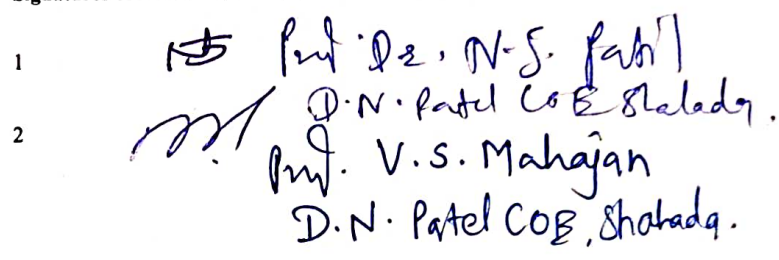 1 Prof. Dr. N.S. Patil
D.N. Patel COE Shahada.
2
Prof. V.S. Mahajan
D.N. Patel COE, Shahada.